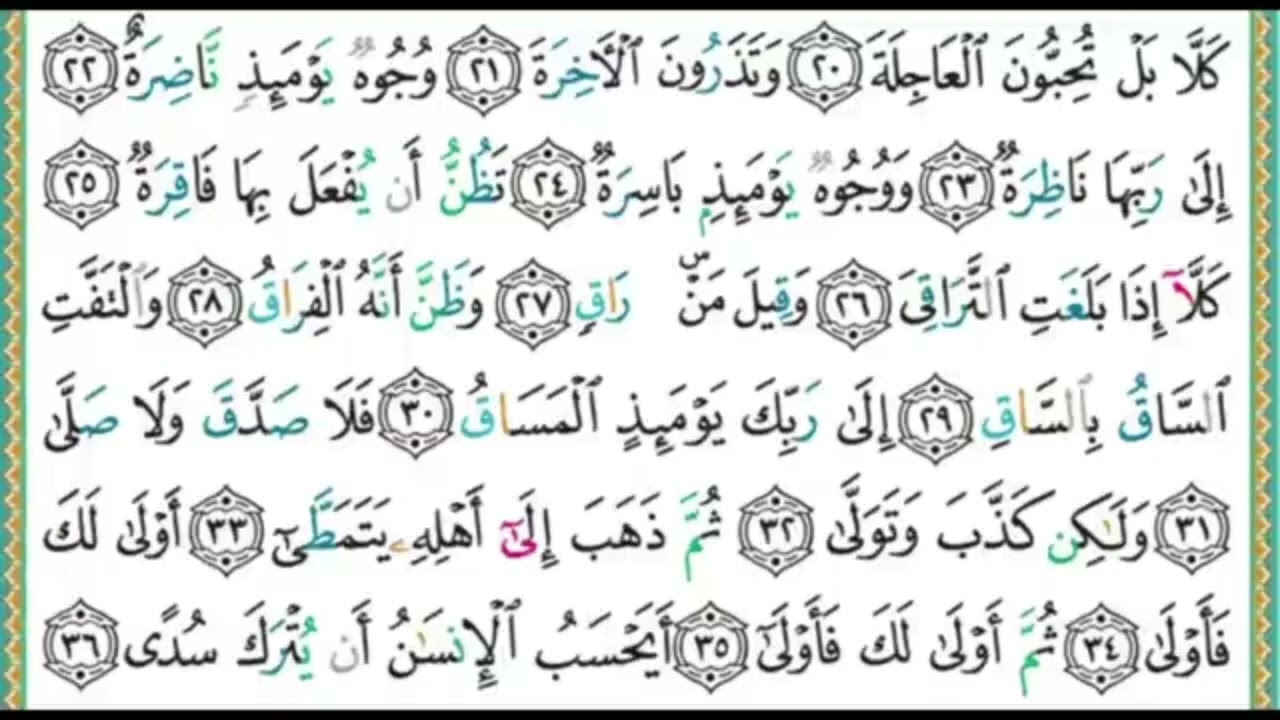 كَلَّا بَلْ تُحِبُّونَ ٱلْعَاجِلَةَ ٢٠ وَتَذَرُونَ ٱلْأَخِرَةَ ٢١ وُجُوهٌ يَوْمَئِذٍ نَّاضِرَةٌ ٢٢
إِلَىٰ رَبِّهَا نَاظِرَةٌ ٢٣ وَوُجُوهٌ يَوْمَئِذٍ بَاسِرَةٌ ٢٤ تَظُنُّ أَن يُفْعَلَ بِهَا فَاقِرَةٌ ٢٥
كَلَّآ إِذَا بَلَغَتِ ٱلتَّرَاقِىَ ٢٦ وَقِيلَ مَنْ ۜ رَاقٍ ٢٧ وَظَنَّ أَنَّهُ ٱلْفِرَاقُ ٢٨ وَٱلْتَفَّتِ
ٱلسَّاقُ بِٱلسَّاقِ ٢٩ إِلَىٰ رَبِّكَ يَوْمَئِذٍ ٱلْمَسَاقُ ٣٠ فَلَا صَدَّقَ وَلَا صَلَّىٰ
٣١ وَلَٰكِن كَذَّبَ وَتَوَلَّىٰ ٣٢ ثُمَّ ذَهَبَ إِلَىٰٓ أَهْلِهِۦ يَتَمَطَّىٰٓ ٣٣ أَوْلَىٰ لَكَ
فَأَوْلَىٰ ٣٤ ثُمَّ أَوْلَىٰ لَكَ فَأَوْلَىٰٓ ٣٥ أَيَحْسَبُ ٱلْإِنسَٰنُ أَن يُتْرَكَ سُدًى ٣٦